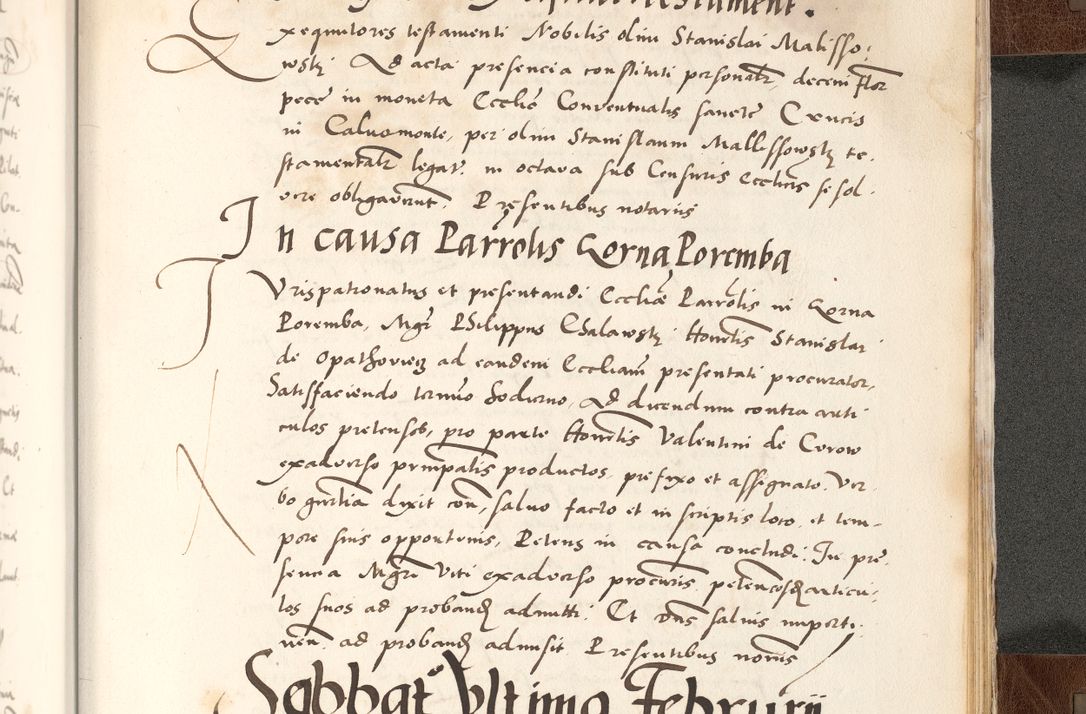 Testament.
Exequutores testamenti Nobilis olim Stanislai Malisso:
wskj Ad acta presencia constituti personalr, decem flor
pece in moneta Ecclie Conventualis sancte Crucis
in Calvomonte, per olim Stanislaum Mallssowskj te.
stamentalr legat. in octava sub Censuris Ecclicis se sol.
vere obligaverunt. Presentibus notariis
In causa Parrolis Gorna Poremba
Jurispatronatus et presentandi Ecclie Parrolis in Gorna
Poremba, Mgr Philippus Chalawskj Honestis Stanislai
de Opathoviecz ad eandem Eccliam presentati procurator,
Satisfaciendo termino hodierno, Ad dicendum contra arti
culos pretensos, pro parte Honestis Valentini de Cerow
exadverso principalis productos, prefixo et assignato. Ver.
bo gnrtia dixit con, salvo facto et in scriptis loco et tem-
pore suis opportunis, Petens in causa concludi. In pre.
sencia Mgri Viti exadverso procuris petencosq articu:
los suos ad proband admitti. Et dns salvis imperti:
nen. ad proband admisit Presentibus nomis
Sabbato Ultima Februarii